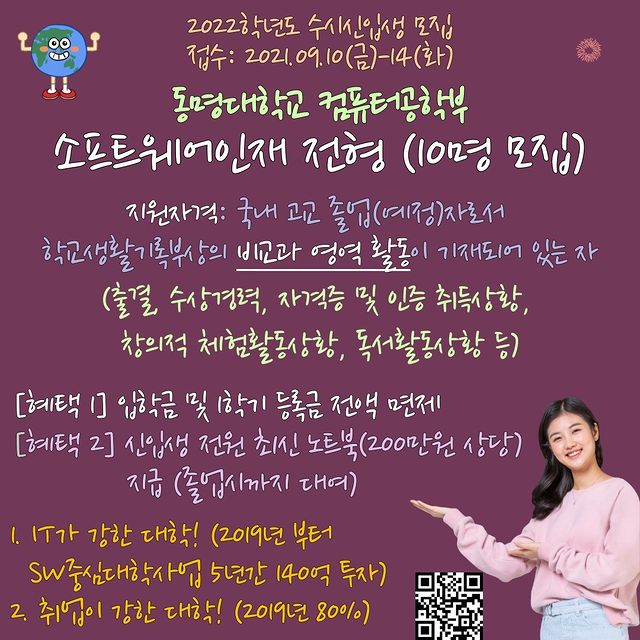 2022학년도 수시신입생 모집
접수: 2021.09.10(금)-14(화)
동명대학교 컴퓨터공학부
소프트웨어인재 전형 (10명 모집)
지원자격: 국내 고교 졸업(예정)자로서
학교생활기록부상의 비교과 영역 활동이 기재되어 있는 자
(출결, 수상경력, 자격증 및 인증 취득상황,
창의적 체험활동상황, 독서활동상황 등)
[혜택 1] 입학금 및 1학기 등록금 전액 면제
[혜택 2] 신입생 전원 최신 노트북(200만원 상당)
지급 (졸업시까지 대여)
1. IT가 강한 대학! (2019년 부터
SW중심대학사업 5년간 140억 투자)
2. 취업이 강한 대학! (2019년 80%)